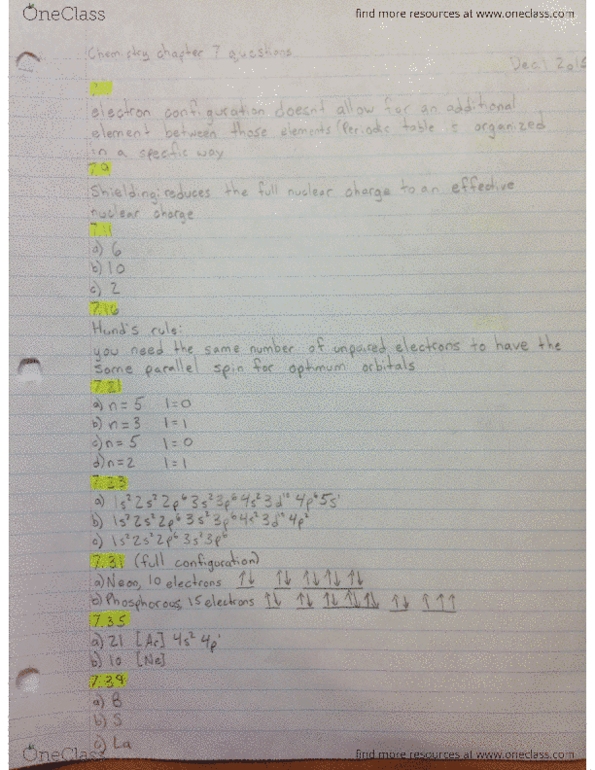 OneClass find more resources at www.oneclass.com
Chemistry chapter 7 questions
Dec 1 201
electron configuration doesnt allow for an additional
element between those elements/Periodic table is organized
in a specfic way
7.9
Shielding: reduces the full nuclear charge to an effective
nuclear charge
7.11
a) 6
b) 10
c) 2
7.16
Hund's rule:
you need the same number of unpaired electrons to have the
same parallel spin for optimum orbitals
7.21
a) n = 5 l = 0
b) n = 3 l = 1
c) n = 5 l = 0
d) n = 2 l = 1
7.23
a) 1s² 2s² 2p⁶ 3s² 3p⁶ 4s² 3d¹⁰ 4p⁶ 5s¹
b) 1s² 2s² 2p⁶ 3s² 3p⁶ 4s² 3d¹⁰ 4p²
c) 1s² 2s² 2p⁶ 3s² 3p⁶
7.31 (full configuration)
a) Neon, 10 electrons ↑↓ ↑↓ ↑↓ ↑↓ ↑↓
b) Phosphorous, 15 electrons ↑↓ ↑↓ ↑↓ ↑↓ ↑↓ ↑↓ ↑ ↑ ↑
7.35
a) 21 [Ar] 4s² 4p¹
b) 10 [Ne]
7.39
a) B
b) S
c) La
OneClass find more resources at www.oneclass.com